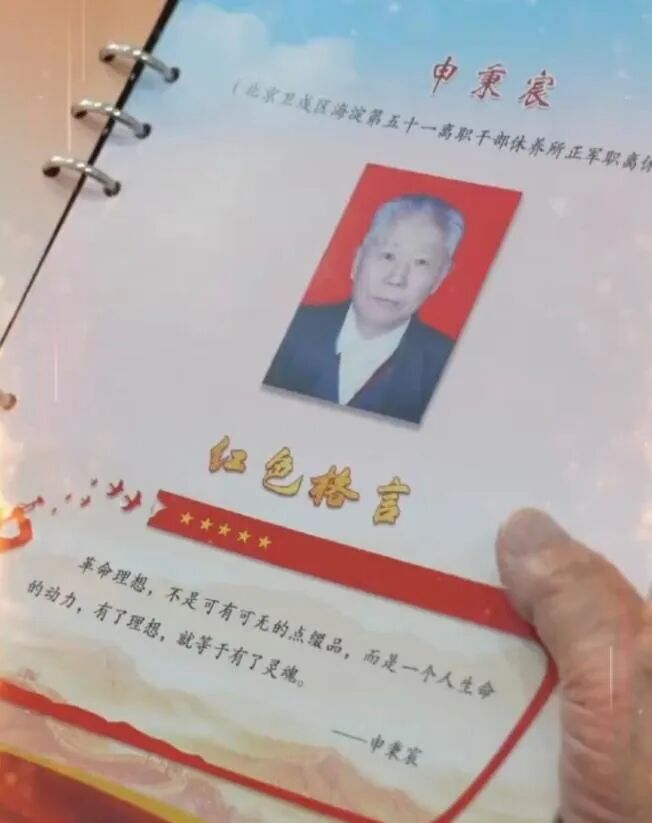 申秉宸
（北京卫戍区海淀第五十一离职干部休养所正军职离休
红色格言
革命理想，不是可有可无的点缀品，而是一个人生命
的动力，有了理想，就等于有了灵魂。
——申秉宸